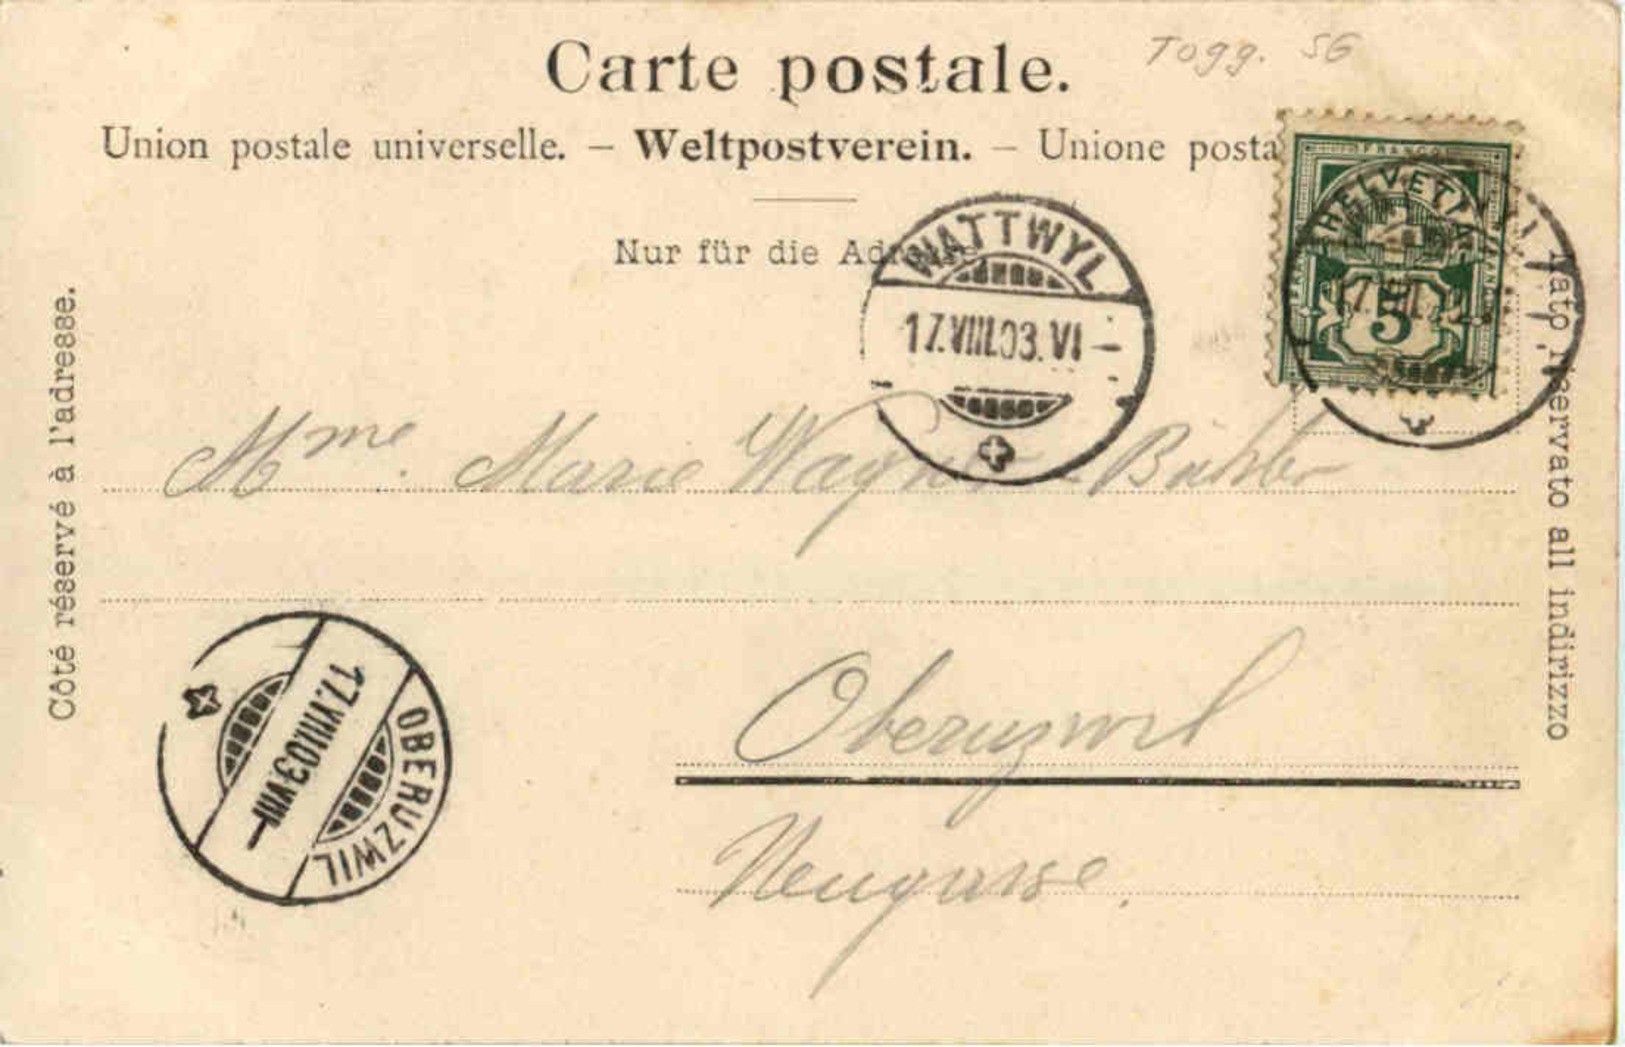 Carte postale.
Togg. SG
Union postale universelle. – Weltpostverein. – Unione posta
Nur für die Adresse
FRANCO
HELVETIA
5
WATTWYL
17.VIII.03.VI–
Côté réservé à l'adresse.
Lato riservato all indirizzo
Mme. Marie Wagner-Bühler
Oberuzwil
Neugasse.
OBERUZWIL
17.VIII.03.VIII–